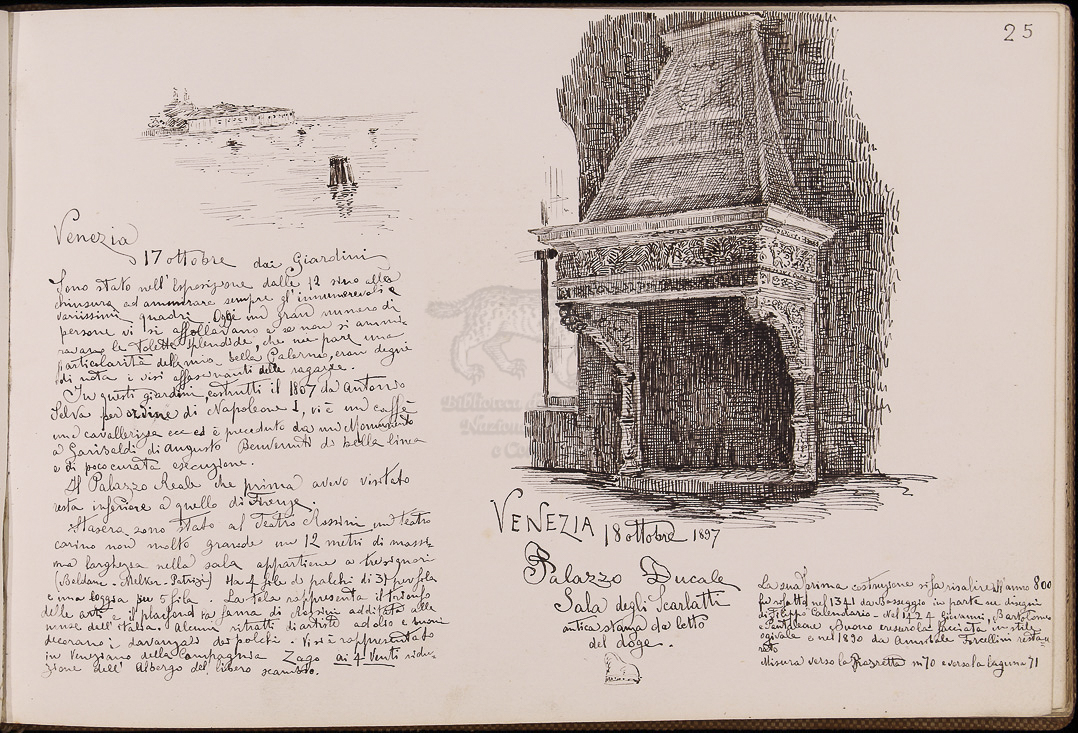 25
Venezia
17 ottobre dai Giardini
Sono stato nell'Esposizione dalle 12 sino alla
chiusura ad ammirare sempre gl'innumerevoli e
variissimi quadri. Oggi un gran numero di
persone vi si affollavano e se non si ammi-
ravano le Tolette splendide, che mi pare una
particolarità della mia bella Palermo, eran degni
di nota i visi affascinanti delle ragazze.
In questi giardini, costrutti il 1807 da Antonio
Selva per ordine di Napoleone I, vi è un caffè
una cavallerizza ecc ed è preceduto da un Monumento
a Garibaldi di Augusto Benvenuti di bella linea
e di poco curata esecuzione.
Il Palazzo Reale che prima avevo visitato
resta inferiore a quello di Firenze.
Stasera sono stato al Teatro Rossini, un teatro
carino non molto grande un 12 metri di massi-
ma larghezza nella sala appartiene a tre signori
(Baldanc. Melkor. Patrizi) Ha 4 file di palchi di 31 per fila
e una loggia per 5 fila. La tela rappresenta il trionfo
delle arti e il plafond la fama di Rossini additata alle
muse dell'Italia. Alcuni ritratti di artisti ad olio e buoni
decorano i davanzali dei palchi. Vi si è rappresentato
in Veneziano della Compagnia Zago ai 4 Venti ridu-
zione dell' Albergo del libero scambio.
VENEZIA 18 ottobre 1897
Palazzo Ducale
Sala degli Scarlatti
antica stanza da letto
del doge.
La sua prima costruzione si fa risalire all'anno 800
fu rifatto nel 1341 da Baseggio in parte su disegni
di Filippo Calendario - Nel 1424 Giovanni, Bartolomeo
e Pantaleone Buono eressero la facciata in stile
ogivale e nel 1890 da Annibale Forcellini restau-
rato
Misura verso la Piazzetta m 70 e verso la laguna 71
Biblioteca
Nazionale